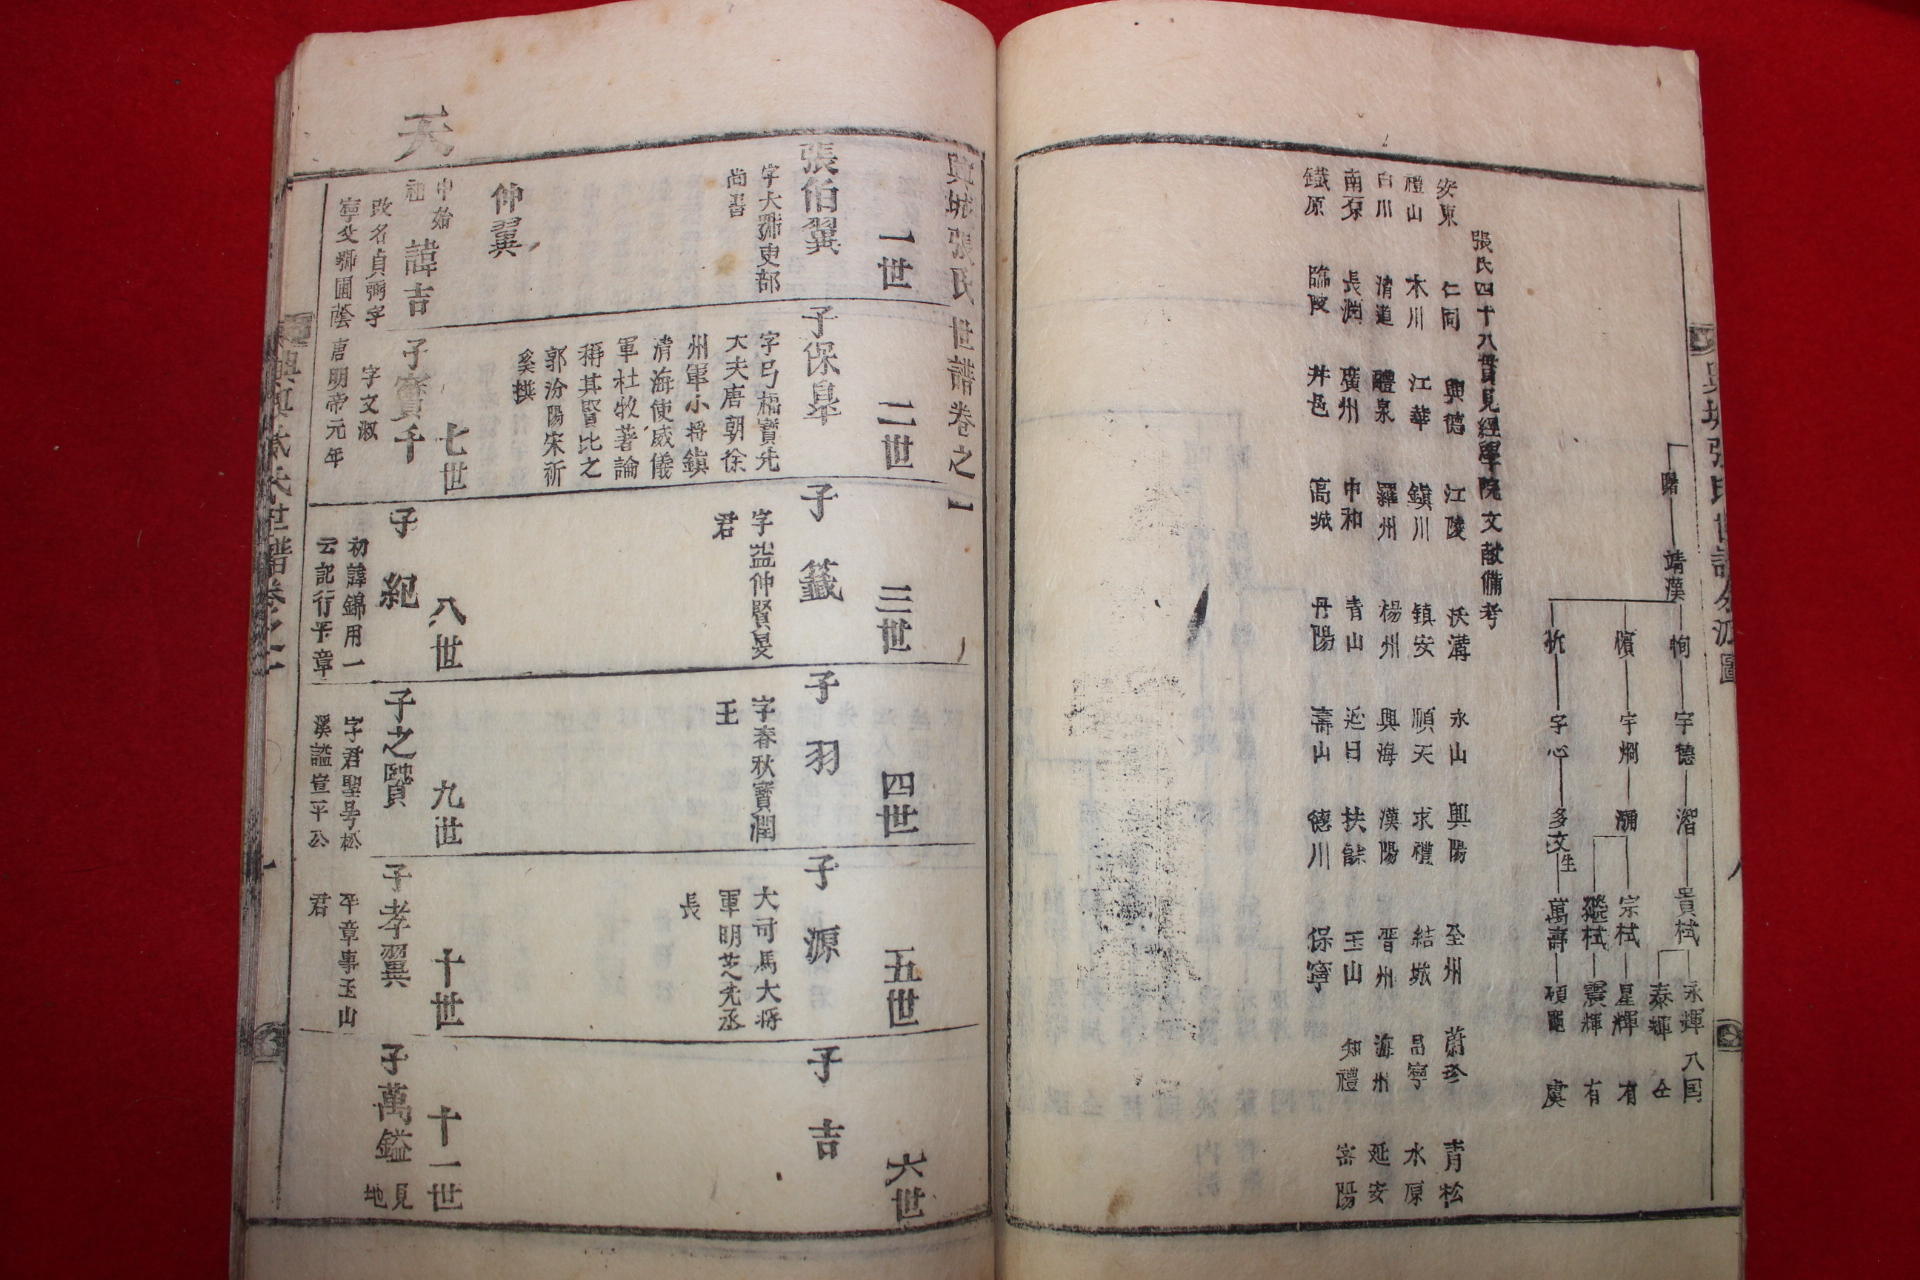 靖漢
恂
宇德
㵢
貴栻
永輝
泰輝
八囯
仝
宇烱
宗栻
星輝
有
震輝
有
宇心
多文
生
萬壽
虞
張氏四十八貫見經學院文献備考
安東 仁同 興德 江陵 沃溝 永山 興陽 全州 蔚珍 青松
禮山 木川 江華 鎮川 镇安 順天 求禮 結城 昌寧 水原
白川 清道 醴泉 羅州 楊州 興海 漢陽 晋州 海州 延安
南原 長渕 廣州 中和 青山 延日 扶餘 玉山 知禮 密陽
鐵原 臨陂 井邑 高城 丹陽 壽山 德川 保寧
興城張氏世譜卷之一
一世
二世
三世
四世
五世
六世
張伯翼
字大郷吏部
尚書
子保皐
字弓福寶光
大夫唐朝徐
州軍小将鎮
清海使威儀
軍杜牧著論
稱其賢比之
郭汾陽宋祈
奚撰
子籖
字益仲賢旻
君
子羽
字春秋寶潤
王
子源
大司馬大将
軍明芝光丞
長
子吉
仲翼
天
七世
八世
九世
十世
十一世
中始
祖
諱吉
改名貞弼字
寧攵郷圃蔭
子實千
字文淑
唐明帝元年
子紀
初諱錦用一
云記行平章
子之賢
字君聖号松
溪謚宣平公
子孝翼
平章事玉山
君
子萬鎰
見
地